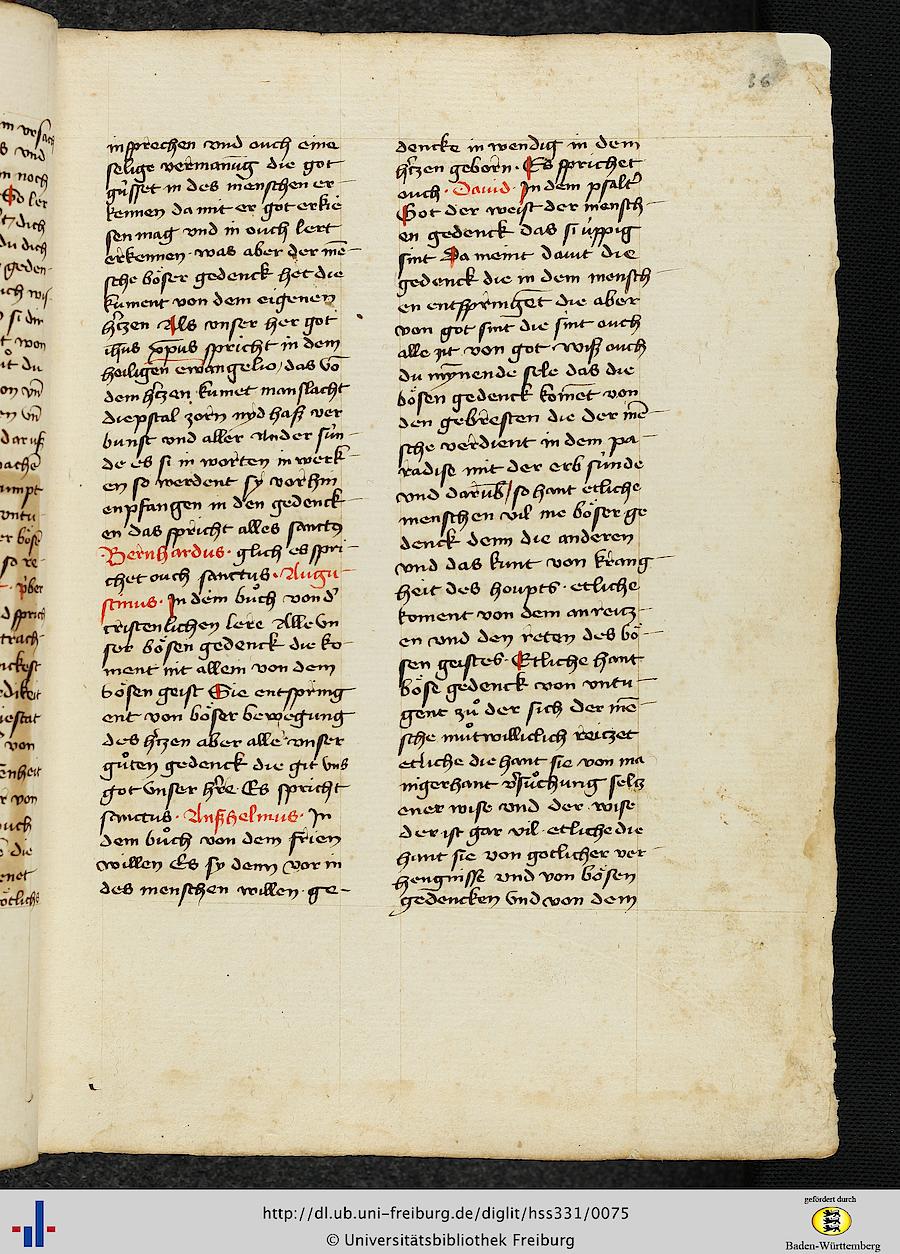 36
insprechen vnd ouch eine
selige vermanūg die got
gússet in des menschen er
kennen da mit er got erkie
sen mag vnd in ouch lert
erkennen · was aber der mē
sche böser gedenck het die
kument von dem eigenen
htzen Als vnser her got
ih̄us xp̄us spricht in dem
heiligen ewangelio / das vō
dem htzen kumet manslacht
diepstal zorn nyd haß ver
bunst vnd aller ander sún
de es si in worten in werk
en so werdent sy vorhin
enpfangen in den gedenck
en das spricht alles sanctus
Bernhardus · glich es spri
chet ouch sanctus · Augu
stinus · In dem bůch von d'
cristenlichen lere Alle vn
ser bösen gedenck die ko
ment nit allein von dem
bösen geist Sie entspring
ent von böser bewegung
des htzen aber alle vnser
gůten gedenck die git vns
got vnser hre Es spricht
sanctus · Anßhelmus · In
dem bůch von dem frien
willen Es sy denn vor in
des menschen willen · ge
dencke in wendig in dem
htzen geborn · Es sprichet
ouch · Dauid · In dem psalt'
Got der weist der mensch
en gedenck das si úppig
sint Da meint dauit die
gedenck die in dem mensch
en entspringet die aber
von got sint die sint ouch
alle zit von got wiß ouch
du mynende sele das die
bösen gedenck komet von
den gebresten die der mē
sche verdient in dem pa
radise mit der erb súnde
vnd darūb / so hant etliche
menschen vil me böser ge
denck denn die anderen
vnd das kunt von krang
heit des houpts · etliche
koment von dem an reitz
en vnd den reten des bö
sen geistes · Etliche hant
böse gedenck von vntu
gent zů der sich der mē
sche můtwilliclich reitzet
etliche die hant sie von ma
nigerhant v'sůchung seltz
ener wise vnd der wise
der ist gar vil · etliche die
hant sie von gotlicher ver
hengnisse vnd von bösen
gedencken vnd von dem
http://dl.ub.uni-freiburg.de/diglit/hss331/0075
© Universitätsbibliothek Freiburg
gefördert durch
Baden-Württemberg